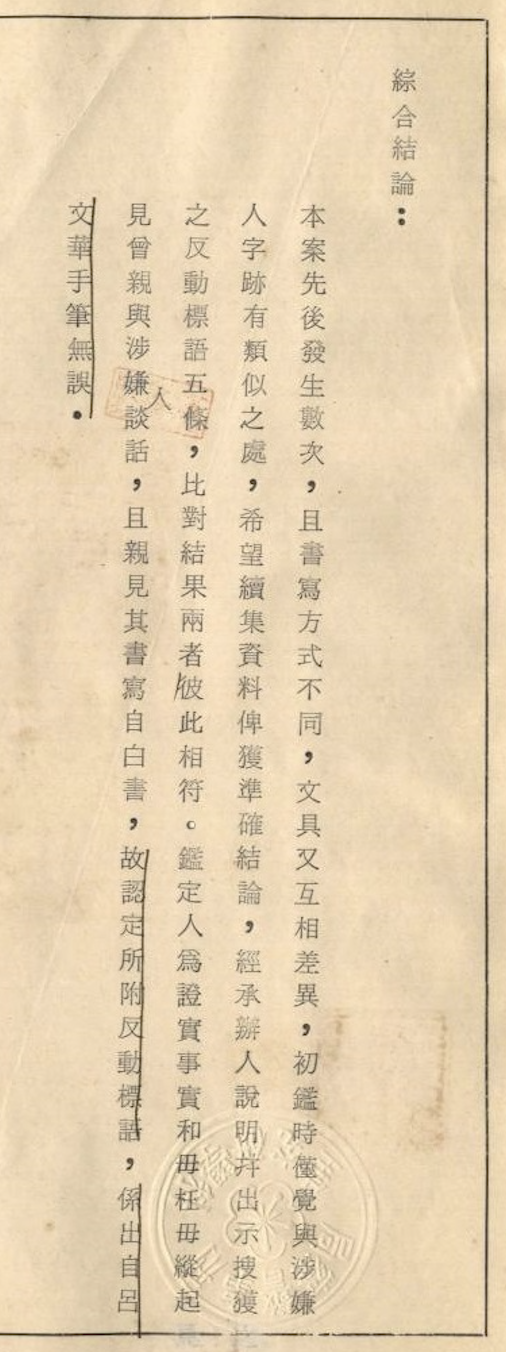 綜合結論：
本案先後發生數次，且書寫方式不同，文具又互相差異，初鑑時僅覺與涉嫌
人字跡有類似之處，希望續集資料俾獲準確結論，經承辦人說明并出示搜獲
之反動標語五條，比對結果兩者彼此相符。鑑定人為證實事實和毋枉毋縱起
見曾親與涉嫌人談話，且親見其書寫自白書，故認定所附反動標語，係出自呂
文華手筆無誤．